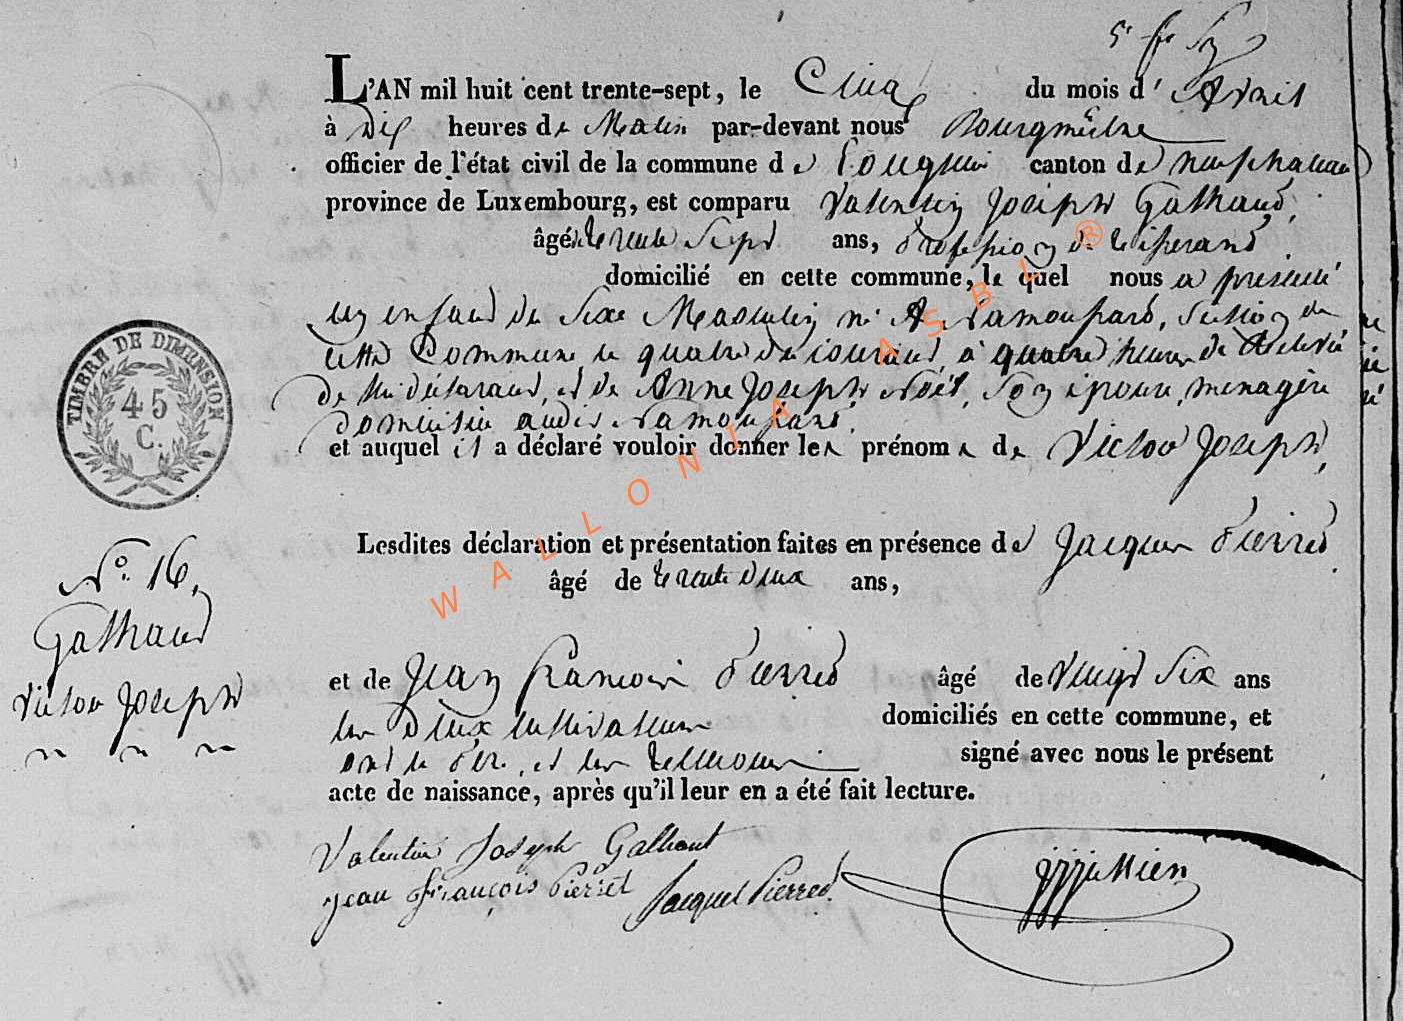 L'AN mil huit cent trente-sept, le Cinq du mois d'Avril
à Dix heures de Matin par-devant nous Bourgmêtre
officier de l'état civil de la commune de canton de neufchateau
province de Luxembourg, est comparu Valentin Joseph Galhaud,
âgé de trente Sept ans, profession de tisserand
domicilié en cette commune, le quel nous a présenté
un enfant de Sexe Masculin né A Namoussard, Section de
cette Commune le quatre du courant, à quatre heures de Relevée
de lui déclarant, et de Anne Joseph Noël, Son épouse, menagère
domiciliée audit Namoussard.
et auquel il a déclaré vouloir donner les prénoms de Victor Joseph,
Lesdites déclaration et présentation faites en présence de Jacques Pierred
âgé de trente deux ans,
N°. 16,
Galhaud
Victor Joseph
et de Jean Francois Pierred âgé de Vingt Six ans
les deux cultivateurs domiciliés en cette commune, et
ont le Père, et les temoins signé avec nous le présent
acte de naissance, après qu'il leur en a été fait lecture.
Valentin Joseph Galhaut
jean françois Pierret Jacques Pierred.
TIMBRE DE DIMENSION
45
C.
WALLONIA ASBL ®